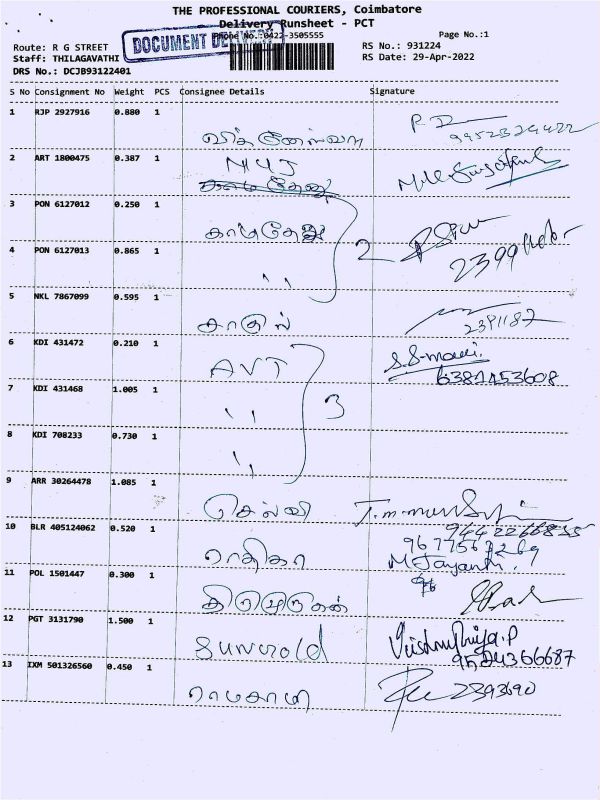 THE PROFESSIONAL COURIERS, Coimbatore
Delivery Runsheet - PCT
Phone No.:0422-3505555 Page No.:1
DOCUMENT DELIVERY
Route: R G STREET RS No.: 931224
Staff: THILAGAVATHI RS Date: 29-Apr-2022
DRS No.: DCJB93122401
S No Consignment No Weight PCS Consignee Details Signature
1 RJP 2927916 0.880 1
2 ART 1800475 0.387 1
3 PON 6127012 0.250 1
காமதேனு
4 PON 6127013 0.865 1
,, 2
5 NKL 7867099 0.595 1
2391187
6 KDI 431472 0.210 1
AVT
6381453608
7 KDI 431468 1.005 1
,, 3
8 KDI 708233 0.730 1
,,
9 ARR 30264478 1.085 1
செல்வி
10 BLR 405124062 0.520 1
ராதிகா M Jayanthi
11 POL 1501447 0.300 1
திருமுருகன்
12 PGT 3131790 1.500 1
Sunworld Vishnupriya.P
9524366687
13 IXM 501326560 0.450 1
2393690